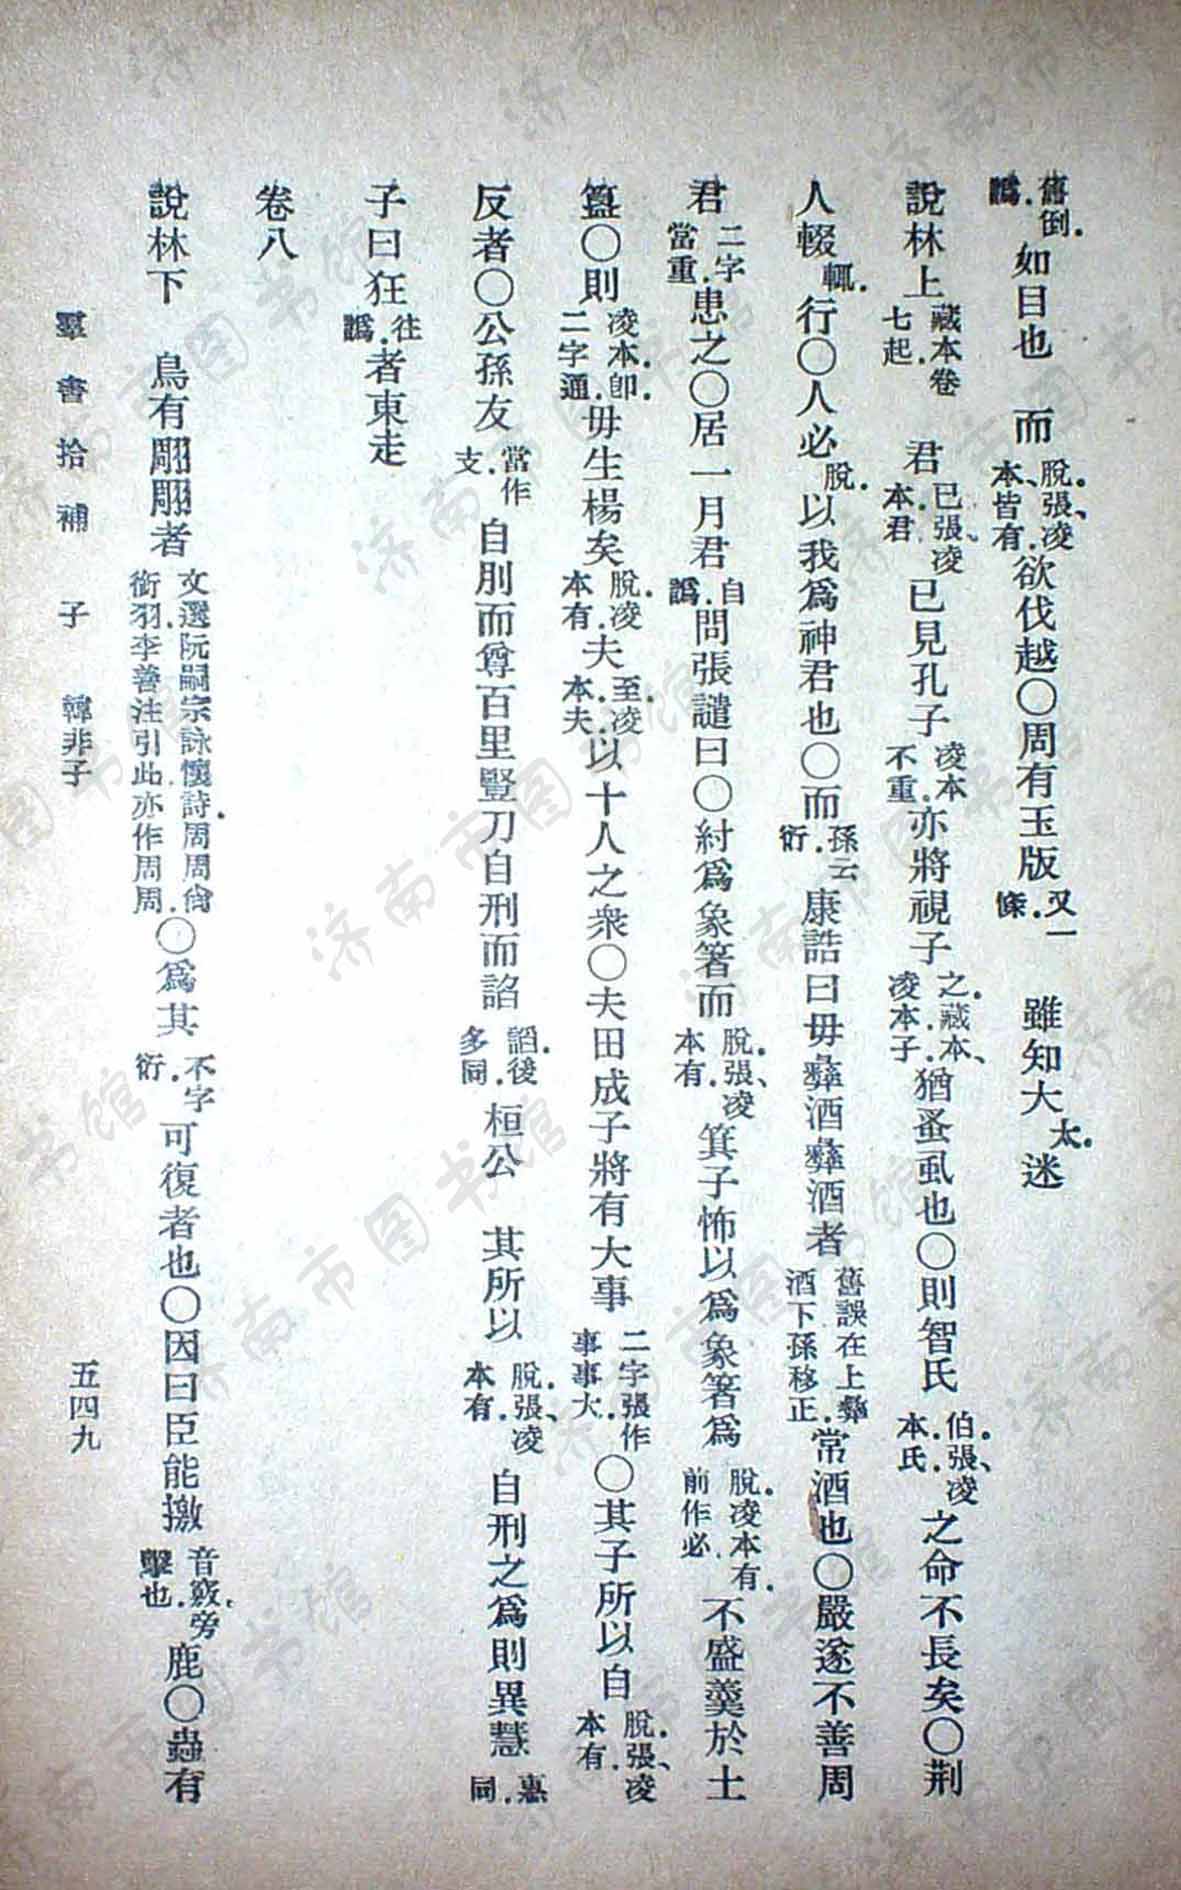 舊倒.譌.如日也　而脫.張、凌本、皆有.欲伐越○周有玉版又一條.　雖知大太.迷
說林上藏本卷七起.　君已.張、凌本.君已見孔子凌本不重.亦將視子之.藏本、凌本.子.猶蚤虱也○則智氏伯.張、凌本.氏.之命不長矣○荆
人輟輒.行○人必脫.以我爲神君也○而孫云衍.康誥曰毋彝酒彝酒者舊誤在上彝酒下孫移正.常酒也○嚴遂不善周
君二字當重.患之○居一月君自譌.問張譴曰○紂爲象箸而脫.張、凌本有.箕子怖以爲象箸爲脫.凌本有.前作必.不盛羹於土
簋○則凌本.卽.二字通.毋生楊矣脫.凌本有.夫至.凌本.夫.以十人之衆○夫田成子將有大事二字張作事事大.○其子所以自脫.張、凌本有.
反者○公孫友當作支.自刖而尊百里豎刀自刑而諂謟.後多同.桓公　其所以脫.張、凌本有.自刑之爲則異慧惠.同.
子曰狂往.譌.者東走
卷八
說林下　鳥有翢翢者文選阮嗣宗詠懷詩.周周尙銜羽.李善注引此亦作周周.○爲其不字衍.可復者也○因曰臣能撽音竅.旁擊也.鹿○蟲有
羣書拾補　子　韓非子　五四九